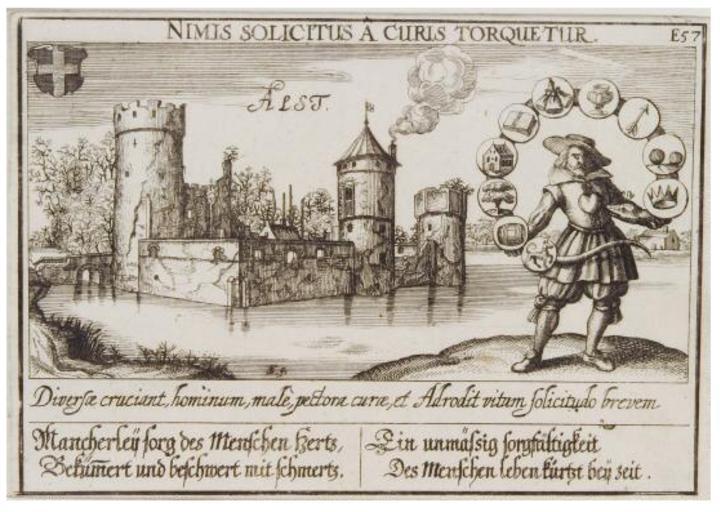 NIMIS SOLICITUS A CURIS TORQUETUR.
E57
ALST.
Diversæ cruciant, hominum, male, pectora curæ, et Adrodit vitam solicitudo brevem
Mancherleÿ sorg des Menschen hertz,
Bekümert und beschwert mit schmertz.
Ein unmässig sorgfältigkeit
Des Menschen leben kürtzt beÿ zeit.